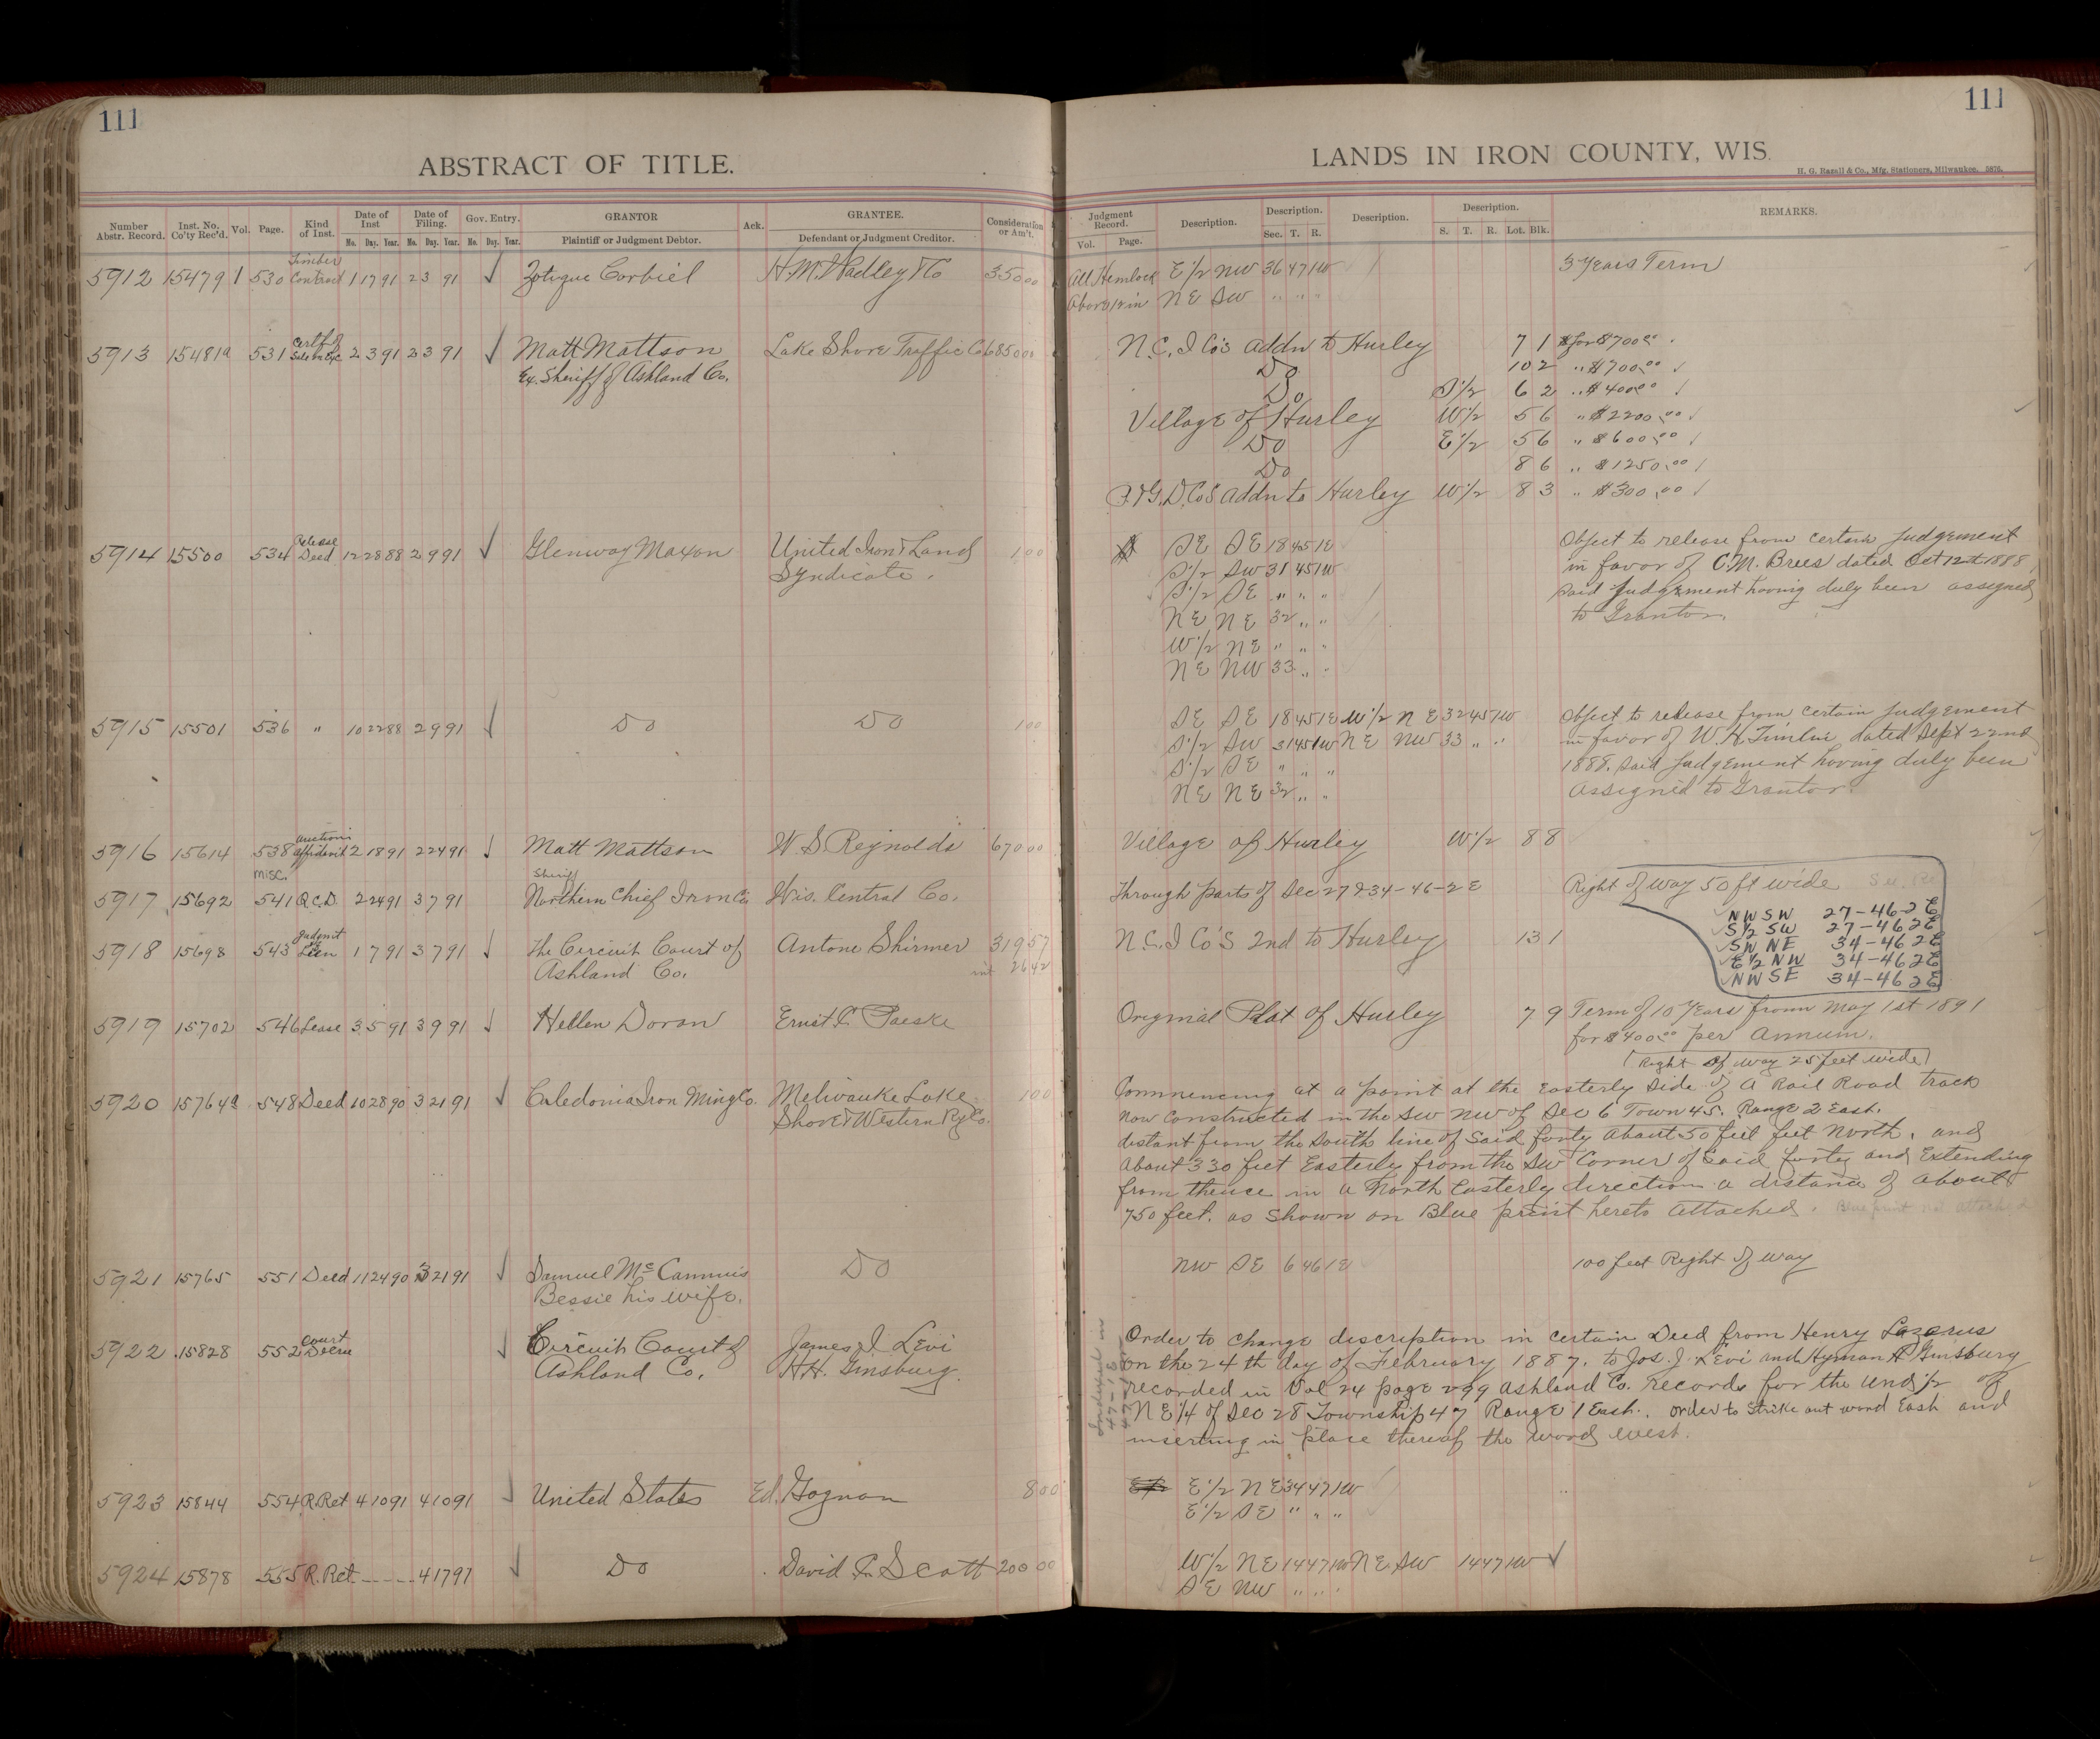 111
ABSTRACT OF TITLE.
Number Abstr. Record. Inst. No. Co'ty Rec'd. Vol. Page. Kind of Inst. Date of Inst Mo. Day. Year. Date of Filing. Mo. Day. Year. Gov. Entry. Mo. Day. Year. GRANTOR Plaintiff or Judgment Debtor. Ack. GRANTEE. Defendant or Judgment Creditor. Consideration or Am't.
5912 15479 1 530 Timber Contract 1 17 91 2 3 91 ✓ Zotique Corbiel H. M. Hadley & Co 350 00
5913 15481a 531 Certf of Sale on Exc 2 3 91 2 3 91 ✓ Matt Mattson Lake Shore Traffic Co 6850 00
Ex. Sheriff of Ashland Co.
5914 15500 534 Release Deed 12 28 88 2 9 91 ✓ Glenway Maxon United Iron & Land 1 00
Syndicate.
5915 15501 536 " 10 22 88 2 9 91 ✓ Do Do 1 00
5916 15614 538 Auction Affidavit 2 18 91 2 24 91 ✓ Matt Mattson W S Reynolds 670 00
Misc. Sheriff
5917 15692 541 Q.C.D. 2 24 91 3 7 91 Northern Chief Iron Co Wis. Central Co.
5918 15698 543 Judgmt Lien 1 7 91 3 7 91 ✓ The Circuit Court of Antone Shirmer 319 57
Ashland Co. int 26 42
5919 15702 546 Lease 3 5 91 3 9 91 ✓ Hellen Doran Ernst Paeske
5920 15764a 548 Deed 10 28 90 3 21 91 ✓ Caledonia Iron Ming Co. Melwauke Lake 1 00
Shore & Western Ry Co.
5921 15765 551 Deed 11 24 90 3 21 91 ✓ Samuel Mc Cammis Do
Bessie his wife.
5922 15828 552 Court Decree ✓ Circuit Court of James J Levi
Ashland Co. H H. Ginsburg.
5923 15844 554 R. Rct 4 10 91 4 10 91 ✓ United States Ed. Gognon 8 00
5924 15878 555 R. Rct ---- 4 17 91 ✓ Do David C. Scott 200 00
111
LANDS IN IRON COUNTY, WIS.
H. G. Razall & Co., Mfg. Stationers, Milwaukee. 5876.
Judgment Record. Vol. Page. Description. Description. Sec. T. R. Description. Description. S. T. R. Lot. Blk. REMARKS.
All Hemlock E 1/2 NW 36 47 1W 3 Years Term
Above 12 in NE SW " " "
N.C. I Co's addn to Hurley 7 1 for $700.00
Do 10 2 " $700.00
Do S 1/2 6 2 " $400.00
Village of Hurley W 1/2 5 6 " $2200.00
Do E 1/2 5 6 " $600.00
Do 8 6 " $1250.00
P. & G. D. Co's addn to Hurley W 1/2 8 3 " $300.00
SE SE 18 45 1E Object to release from certain judgement
S 1/2 SW 31 45 1W in favor of C. M. Brees dated Oct 12th 1888
S 1/2 SE " " " said judgement having duly been assigned
NE NE 32 " " to Grantor.
W 1/2 NE " " "
NE NW 33 " "
SE SE 18 45 1E W 1/2 NE 32 45 1W Object to release from certain judgement
S 1/2 SW 31 45 1W NE NW 33 " " in favor of W. H. Timlin dated Sept 22nd
S 1/2 SE " " " 1888. said judgement having duly been
NE NE 32 " " assigned to Grantor.
Village of Hurley W 1/2 8 8
Through parts of Sec 27 & 34-46-2E Right of way 50 ft wide
NW SW 27-46-2E
S 1/2 SW 27-46 2E
SW NE 34-46 2E
E 1/2 NW 34-46 2E
NW SE 34-46 2E
N.C. I Co's 2nd to Hurley 13 1
Original Plat of Hurley 7 9 Term of 10 Years from May 1st 1891
for $400.00 per Annum.
(Right of way 25 feet wide)
Commencing at a point at the Easterly side of a Rail Road track
now constructed in the SW NW of Sec 6 Town 45. Range 2 East.
distant from the South line of said forty about 50 feet feet North, and
about 330 feet Easterly from the SW Corner of said forty and Extending
from thence in a North Easterly direction a distance of about
750 feet. as shown on Blue print hereto attached. Blue print not attached
NW SE 6 46 1E 100 feet Right of way
Indexed in 47-1E
Order to change description in certain Deed from Henry Lazarus
on the 24th day of February 1887. to Jos. J. Levi and Hyman H Ginsburg
recorded in Vol 24 page 299 Ashland Co. records for the und 1/2 of
NE 1/4 of Sec 28 Township 47 Range 1 East. order to strike out word East and
inserting in place thereof the word West.
E 1/2 NE 34 47 1W
E 1/2 SE " " "
W 1/2 NE 14 47 1W NE SW 14 47 1W ✓
SE NW " " "